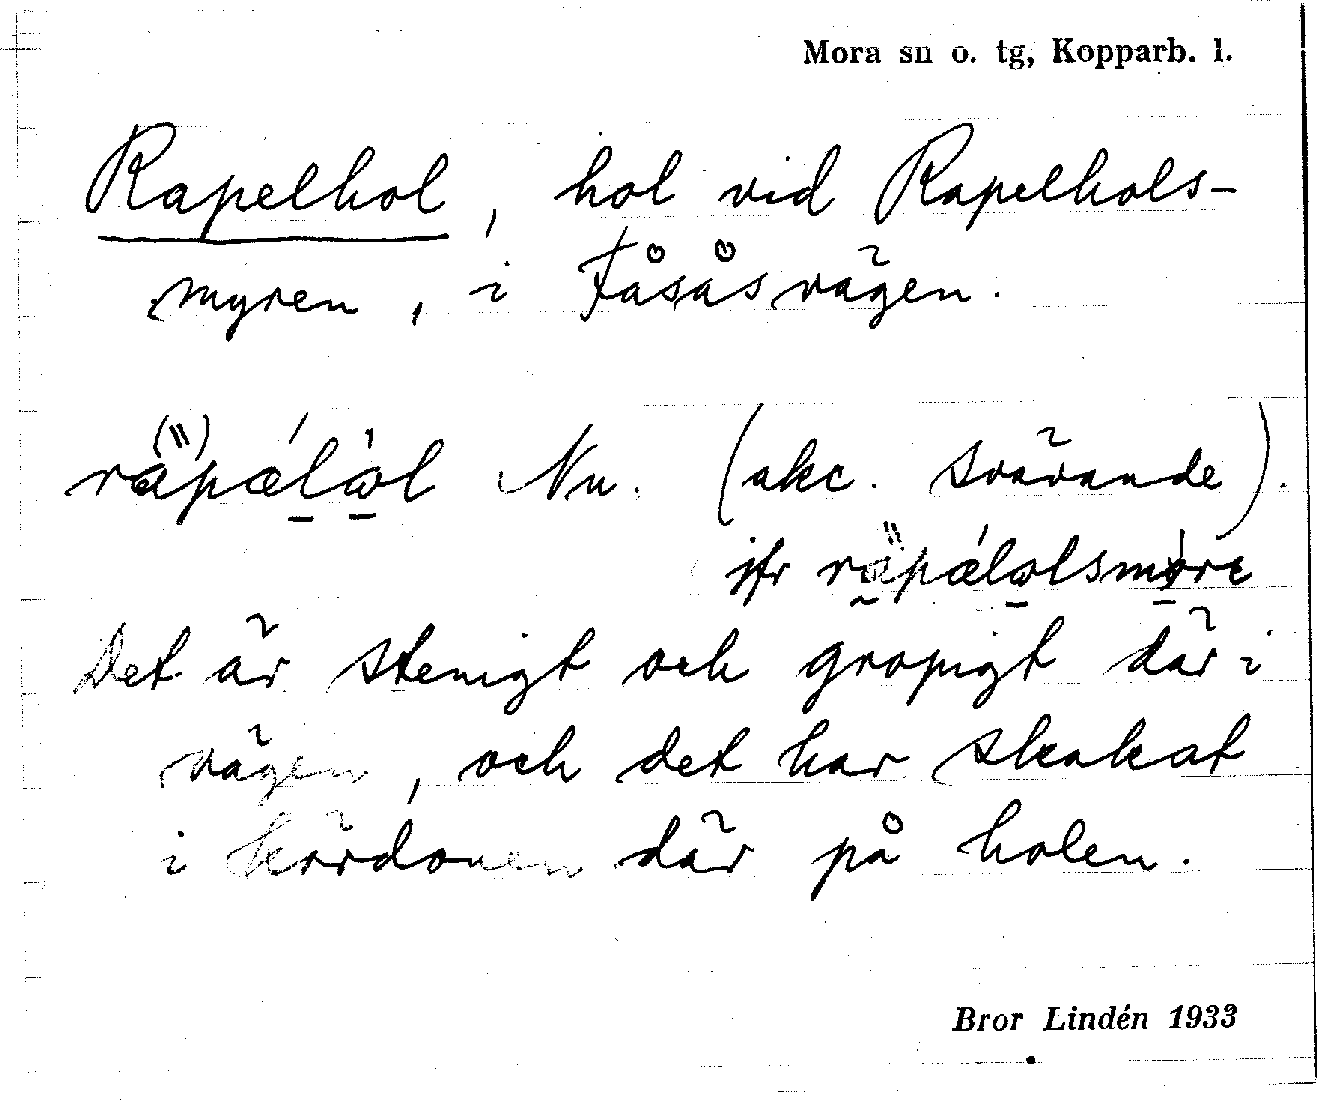 Mora sn o. tg, Kopparb. l.
Rapelhol, hol vid Rapelhols-
myren, i Fåsåsvägen.
Nu. (akc. svävande).
jfr
Det är stenigt och gropigt där i
vägen, och det har skakat
i kördonen där på holen.
Bror Lindén 1933